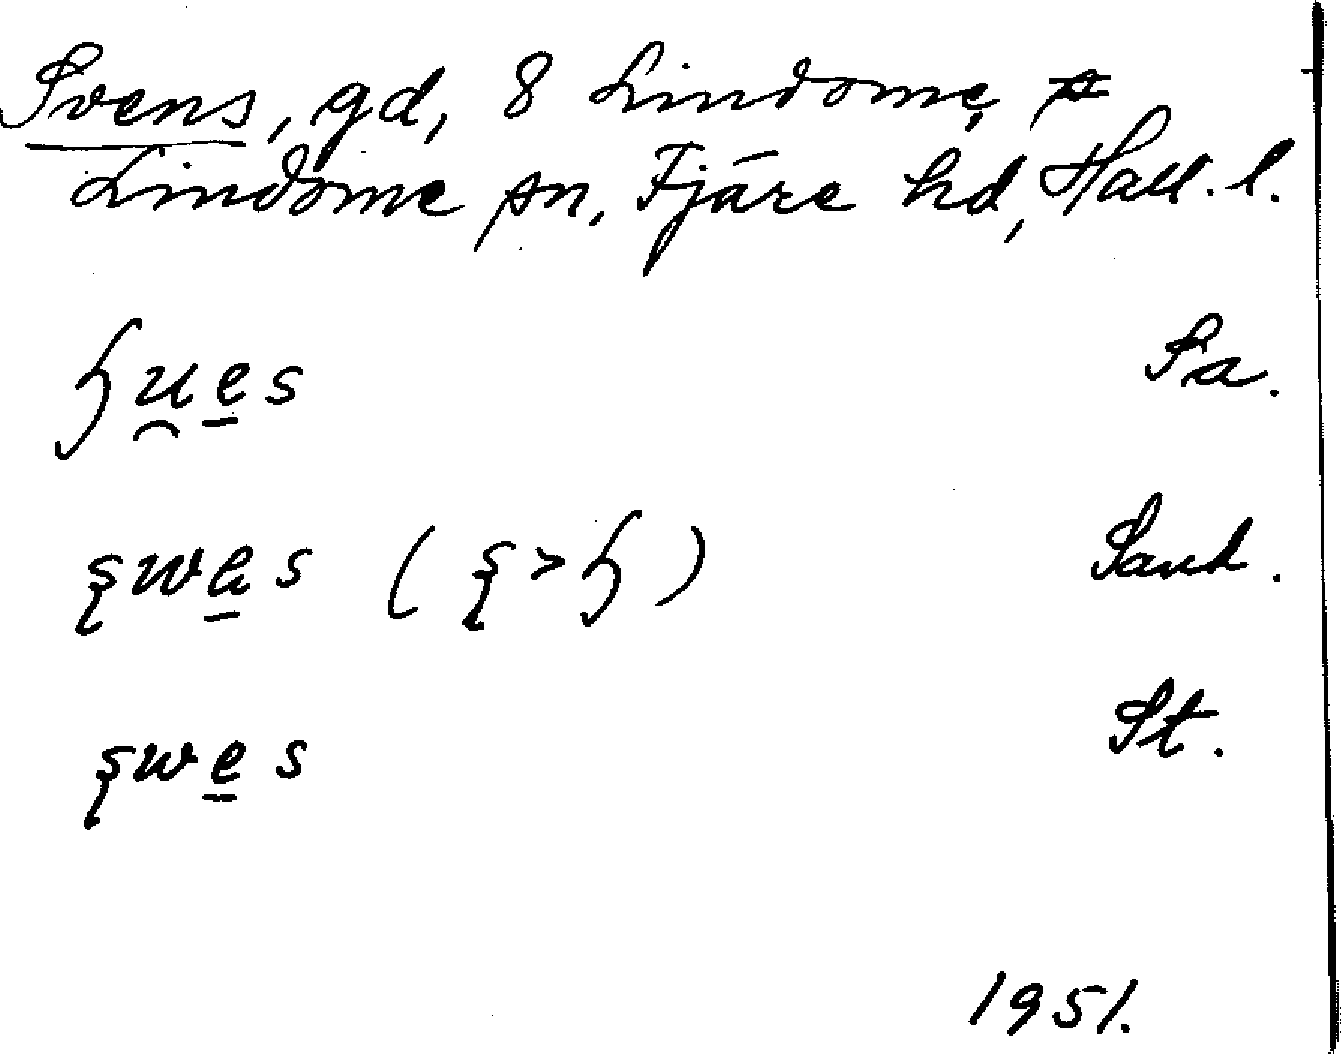 Svens, gd, 8 Lindome,
Lindome sn, Fjäre hd, Hall. l.
ɧu̯e̠s Sa.
swe̠s ( ș > ɧ ) Sand.
șwe̠s St.
1951.